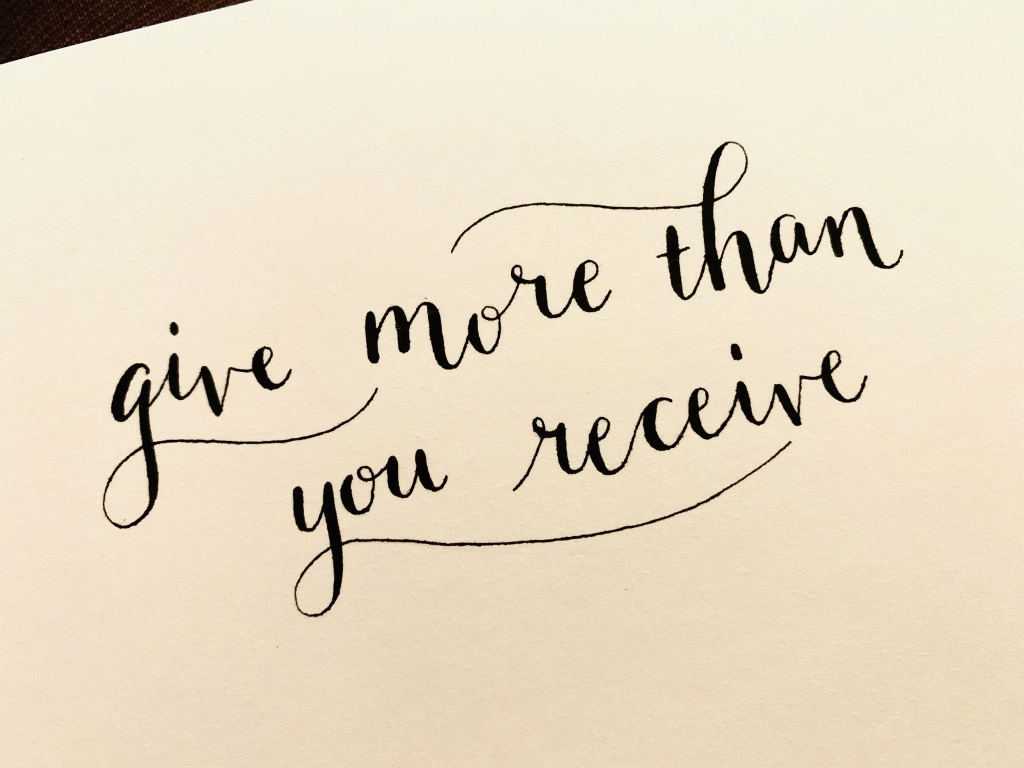 give more than
you receive